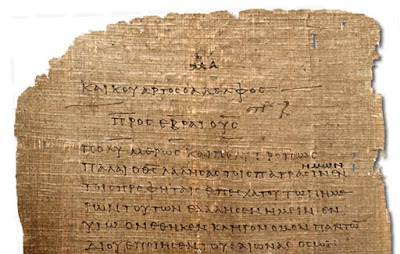 ΚΑΙ ΚΟΥΑΡΤΟϹ Ο ΑΔΕΛΦΟϹ
ΠΡΟϹ ΕΒΡΑΙΟΥϹ
ΠΟΛΥΜΕΡΩϹ ΚΑΙ ΠΟΛΥΤΡΟΠΩϹ
ΗΜΩΝ
ΠΑΛΑΙ Ο ΘϹ ΛΑΛΗϹΑϹ ΤΟΙϹ ΠΑΤΡΑϹΙΝ ΕΝ
ΤΟΙϹ ΠΡΟΦΗΤΑΙϹ ΕΠ ΕϹΧΑΤΟΥ ΤΩΝ ΗΜΕ
ΡΩΝ ΤΟΥΤΩΝ ΕΛΑΛΗϹΕΝ ΗΜΕΙΝ ΕΝ
ΥΙΩ ΟΝ ΕΘΗΚΕΝ ΚΛΗΡΟΝΟΜΟΝ ΠΑΝΤΩ̅
ΔΙ ΟΥ ΕΠΟΙΗϹΕΝ ΤΟΥϹ ΑΙΩΝΑϹ ΟϹ ΩΝ